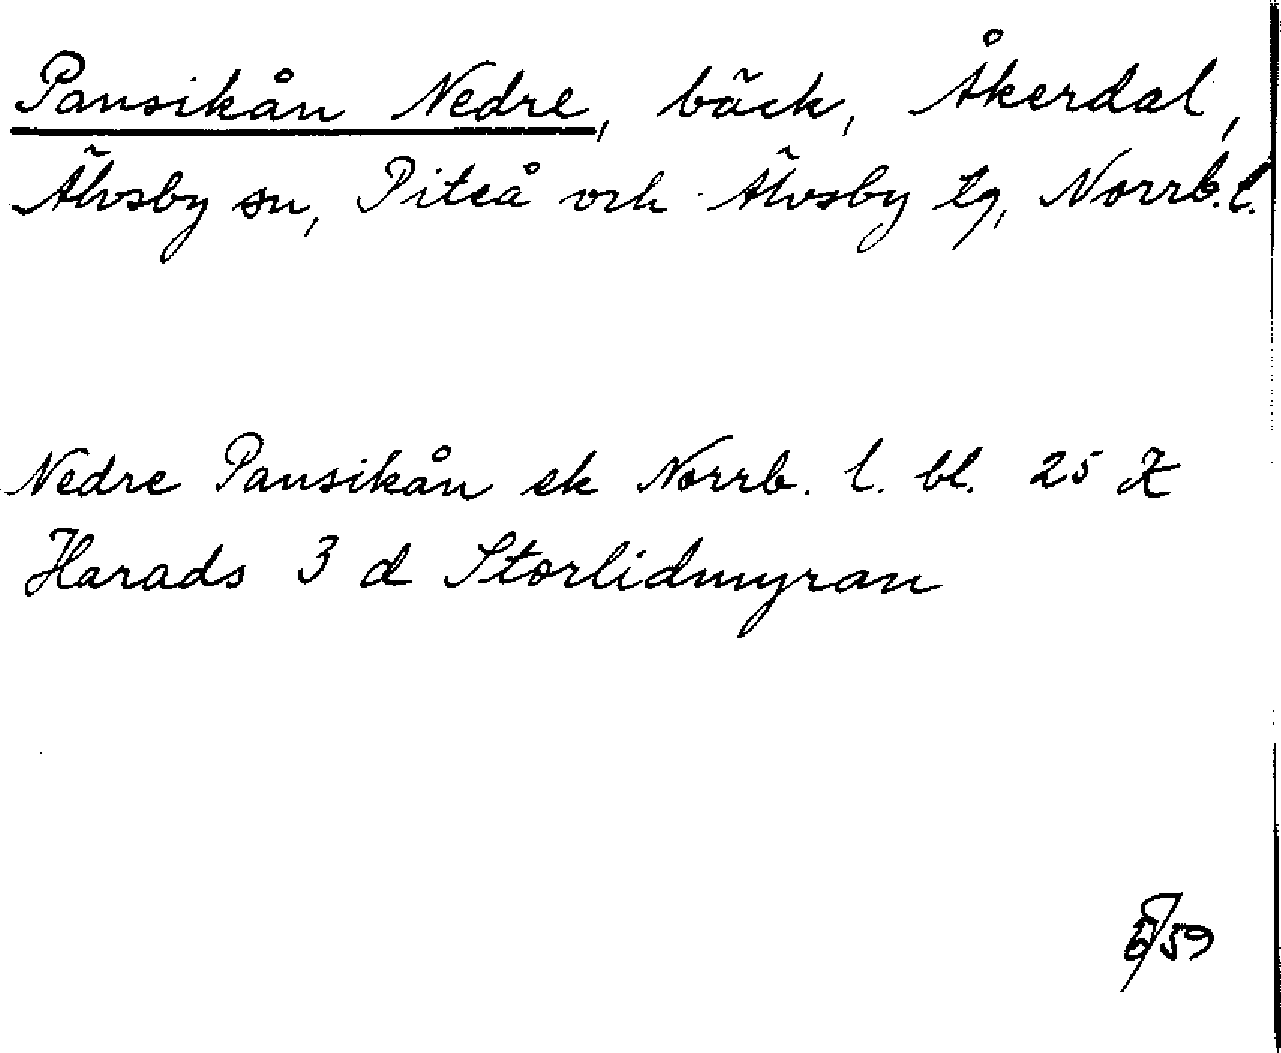 Pansikån Nedre, bäck, Åkerdal,
Älvsby sn, Piteå och Älvsby tg, Norrb. l.
Nedre Pansikån ek Norrb. l. bl. 25 K
Harads 3 d Storlidmyran
59